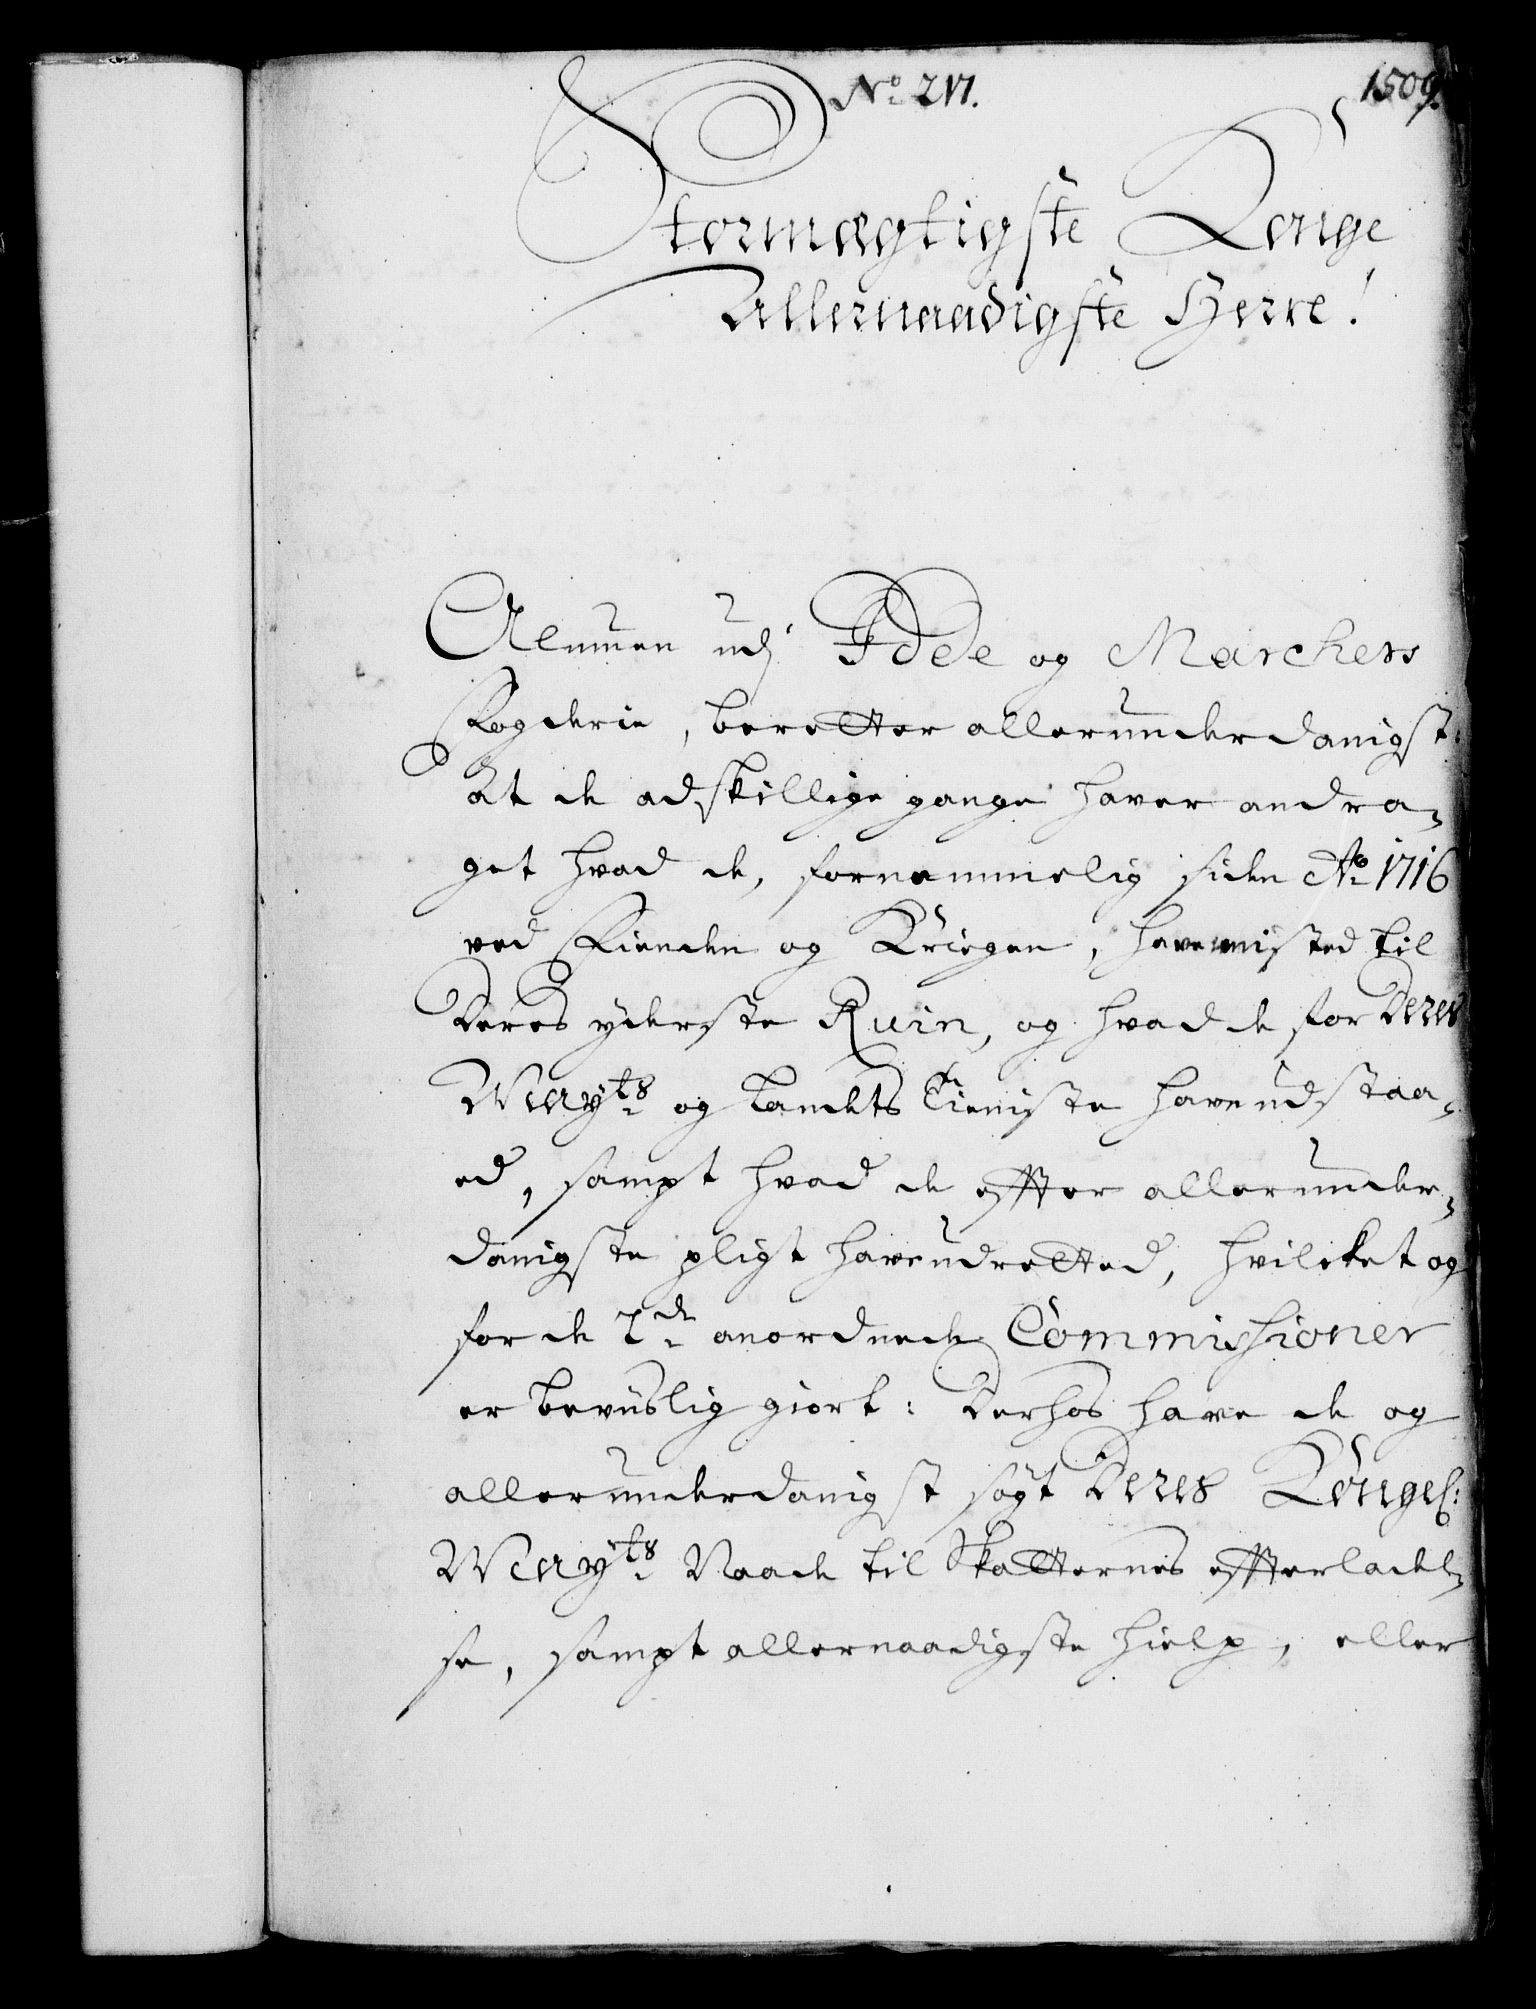 No 217.
1509.
Stormægtigste Konge
Allernaadigste Herre!
Almuen udj Idde og Marchers
Fogderie, beretter allerunderdanigst:
At de adskillige gange haver andra-
get hvad de, fornemmelig siden Ao 1716
ved Fienden og Kriegen, have misted til
Deres yderste Ruin, og hvad de for Deres
Mayts og Landets Tieniste have udstaa-
ed, sampt hvad de effter allerunder-
danigste pligt have udretted, hvilcket og
for de 2de anordnede Commissioner
er beviislig giort: Derhos have de og
allerunderdanigst søgt Deres Kongel:
Mayts Naade til Skatternes effterladel-
se, sampt allernaadigste hielp, eller